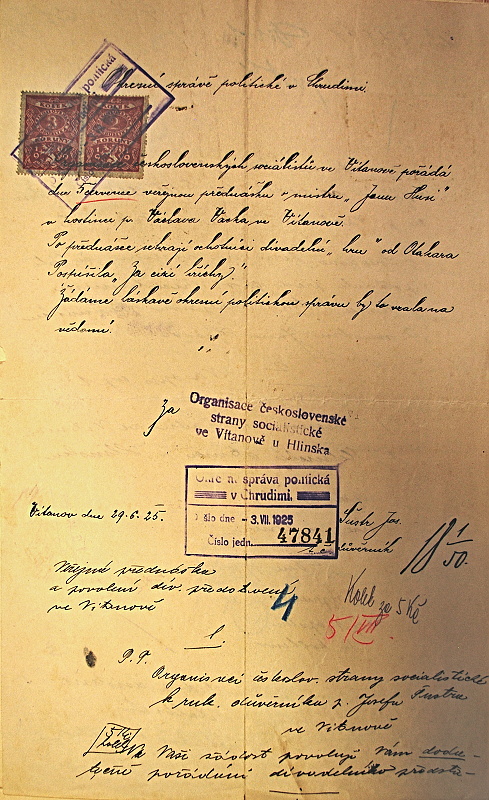 Okresní správě politické v Chrudimi.
politická
československých socialistů ve Vítanově pořádá
dne 5 července veřejnou přednášku o mistru „Janu Husi"
v hostinci p. Václava Vaška ve Vítanově.
Po přednášce sehrají ochotníci divadelní „hru" od Otakara
Pospíšila „Za cizí hříchy."
Žádáme láskavě okresní politickou správu by to vzala na
vědomí.
Za
Organisace československé
strany socialistické
ve Vítanově u Hlinska
Okresní správa politická
v Chrudimi.
Došlo dne - 3. VII. 1925
Číslo jedn. 47841
Vítanov dne 29.6.25.
Šustr Jos.
důvěrník
18 1/50.
Veřejná přednáška
a povolení div. představení
ve Vítanově
4
Kolek za 5 Kč
5/VII.
1.
P. T.
Organisaci českoslov. strany socialistické
k ruk. důvěrníka p. Josefa Šustra
ve Vítanově
5 Kč
kolek
K Vaší žádosti povoluji Vám doda-
tečně pořádání divadelního předsta-